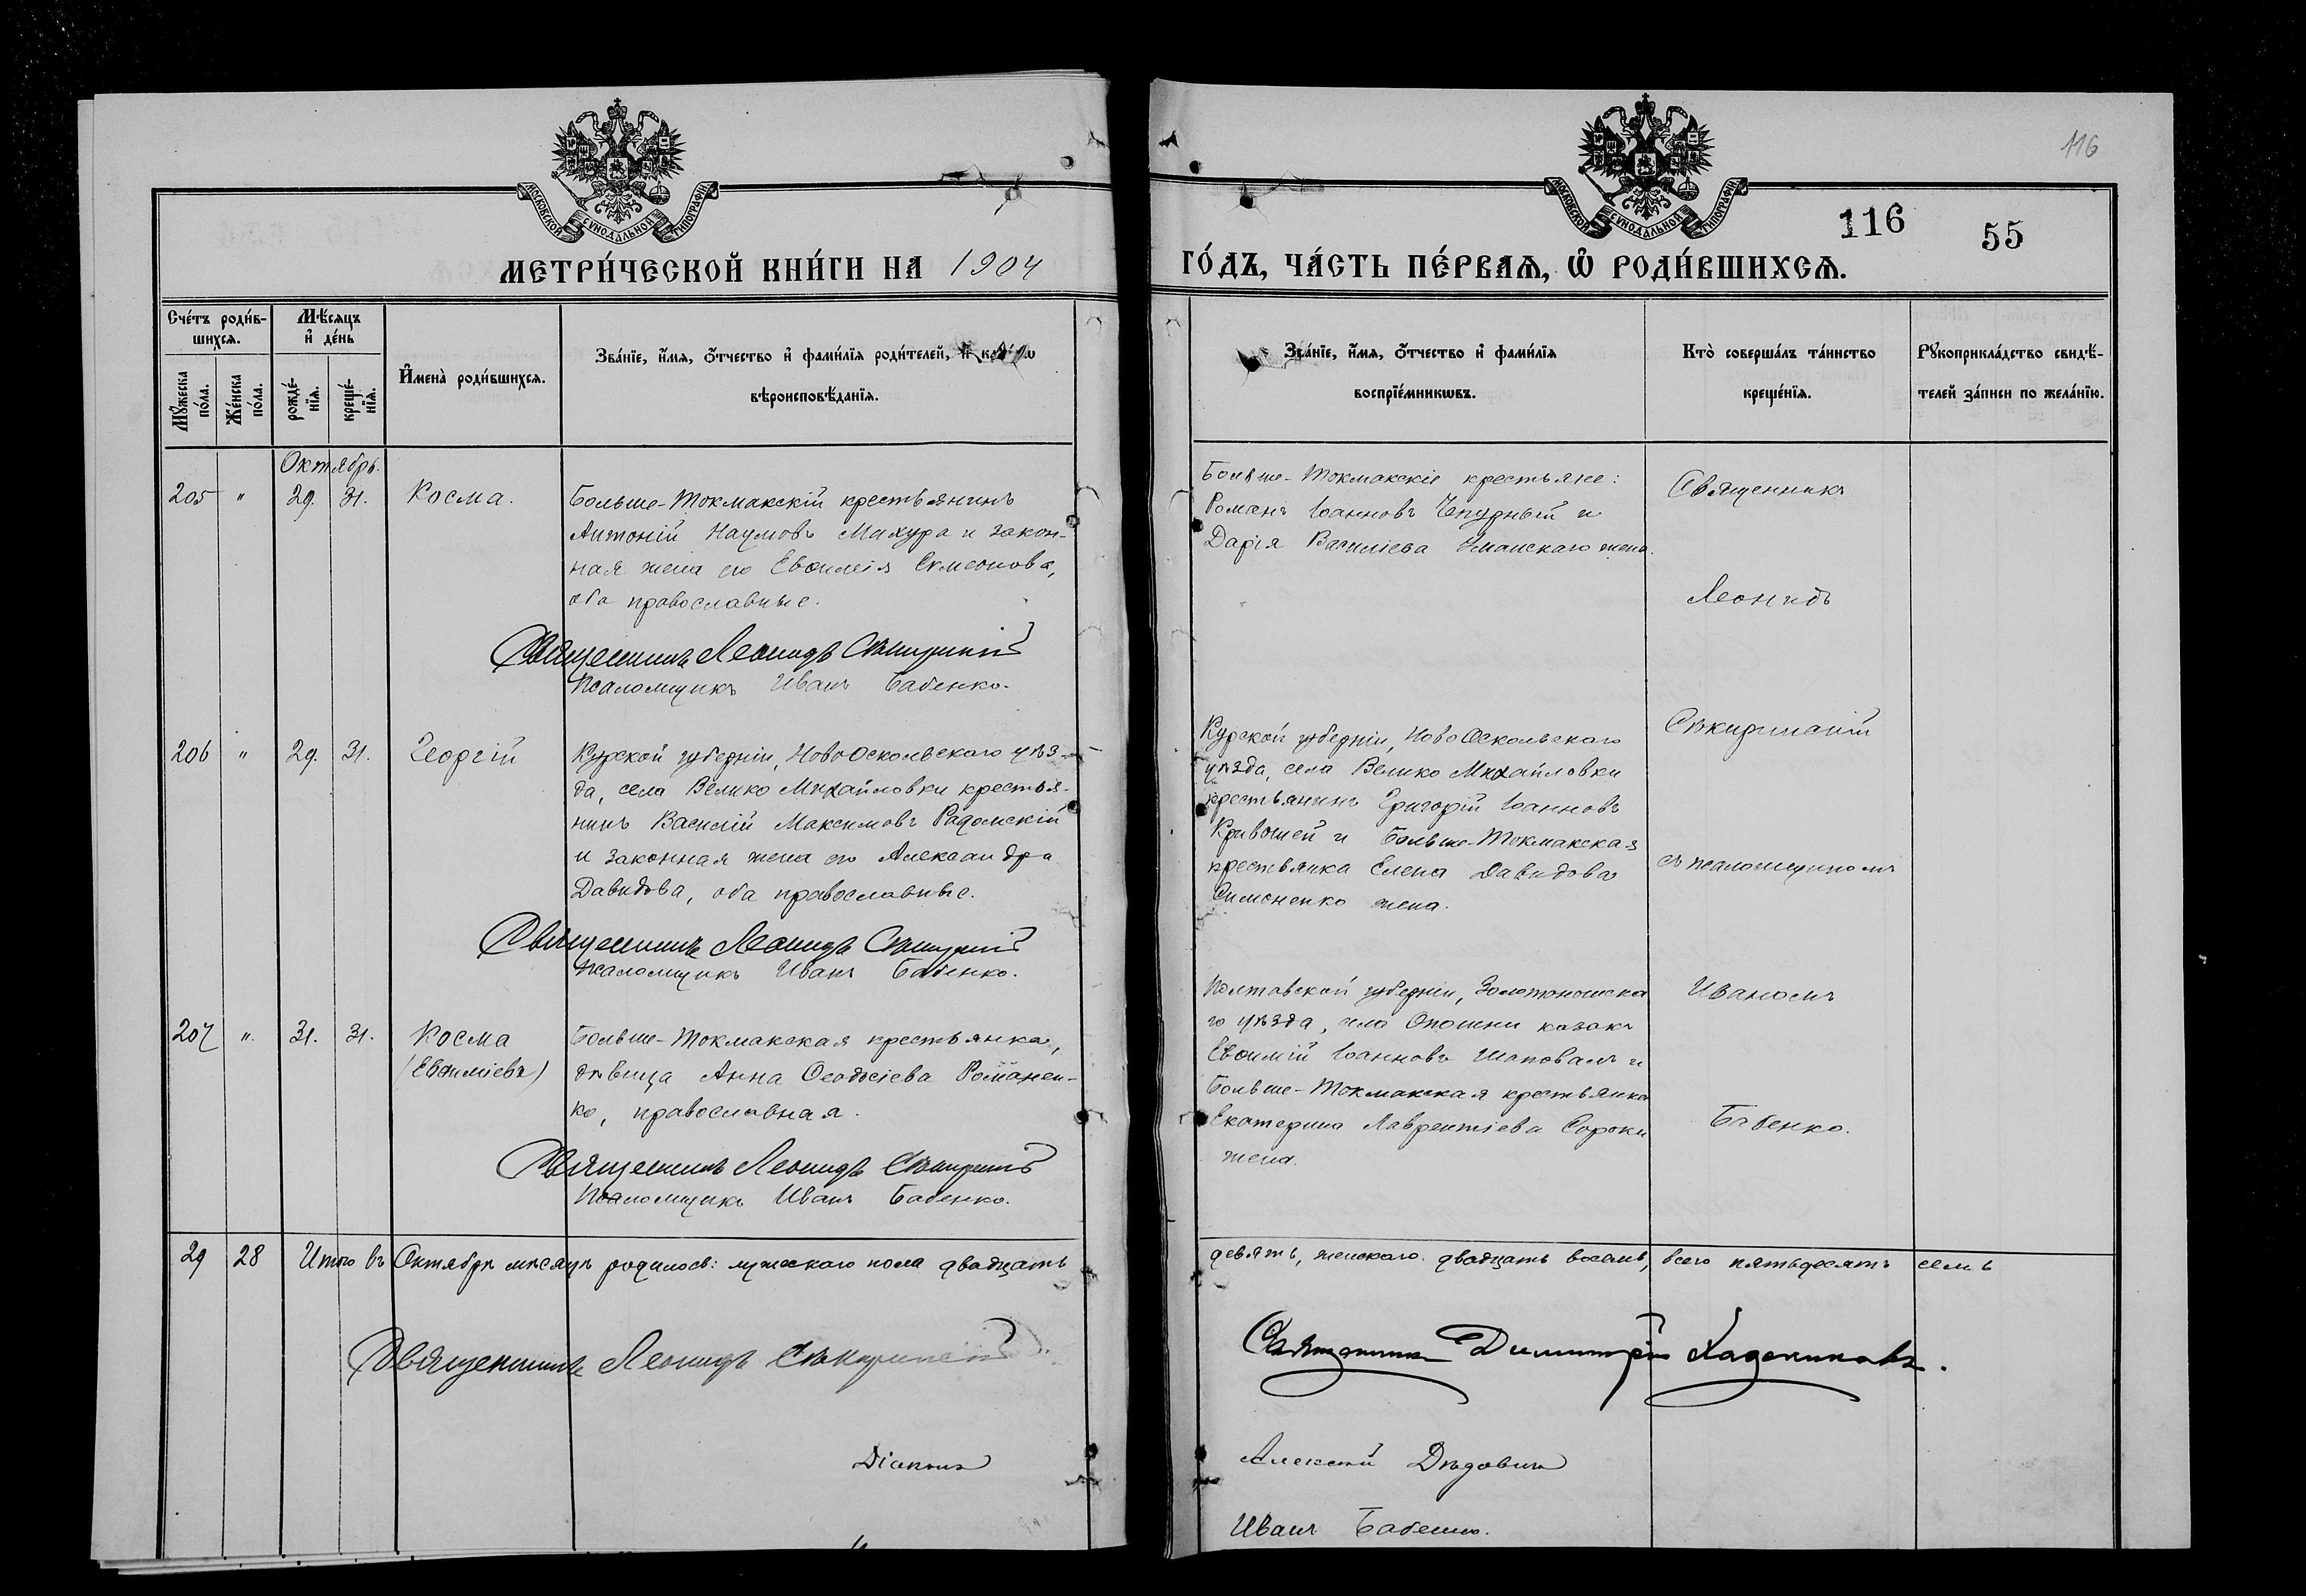 116
МОСКОВСКОЙ СѴНОДАЛЬНОЙ ТИПОГРАФІИ
МОСКОВСКОЙ СѴНОДАЛЬНОЙ ТИПОГРАФІИ
116
55
МЕТРИ́ЧЕСКОЙ КНИ́ГИ НА 1904
ГО́ДЪ, ЧА́СТЬ ПЕ́РВАѦ, Ѡ҆ РОДИ́ВШИХСѦ.
Сче́тъ роди́в-
шихсѧ.
Мѣ́сѧцъ
и҆ де́нь
Мꙋ́жеска
по́ла.
Же́нска
по́ла.
рожде́-
нїѧ.
креще́-
нїѧ.
И҆мена̀ роди́вшихсѧ.
Зва́нїе, и҆́мѧ, ѻ҆́тчество и҆ фами́лїѧ роди́телей, и҆
вѣроисповѣ́данїѧ.
Зва́нїе, и҆́мѧ, ѻ҆́тчество и҆ фами́лїѧ
воспрїе́мникѡвъ.
Кто̀ соверша́лъ та́инство
креще́нїѧ.
Рꙋкоприкла́дство свидѣ́-
телей за́писи по жела́нїю.
Октябрь.
205 " 29. 31. Косма.
Больше-Токмакскій крестьянинъ
Антоній Наумовъ Махура и закон-
ная жена его Евѳимія Симеонова,
оба православные.
Священникъ Леонидъ Сѣкиринскій
Псаломщикъ Иванъ Бабенко.
Больше-Токмакскіе крестьяне:
Романъ Іоанновъ Чепурный и
Дарія Василіева Уманскаго жена.
Священникъ
Леонидъ
206 " 29. 31. Георгій
Курской губерніи, НовоОскольскаго уѣз-
да, села Велико Михайловки крестья-
нинъ Василій Максимовъ Радомскій
и законная жена его Александра
Давидова, оба православные.
Священникъ Леонидъ Сѣкиринскій
Псаломщикъ Иванъ Бабенко.
Курской губерніи, НовоОскольскаго
уѣзда, села Велико Михайловки
крестьянинъ Григорій Іоанновъ
Кривошей и Больше-Токмакская
крестьянка Елена Давидова
Симоненко жена.
Сѣкиринскій
съ псаломщикомъ
207 ". 31. 31. Косма
(Евѳиміевъ)
Больше-Токмакская крестьянка,
дѣвица Анна Ѳеодосіева Романен-
ко, православная.
Священникъ Леонидъ Сѣкиринскій
Псаломщикъ Иванъ Бабенко.
Полтавской губерніи, Золотоношска
го уѣзда, села Опошни казакъ
Евѳимій Іоанновъ Шаповалъ и
Больше-Токмакская крестьянка
Екатерина Лаврентіева Сороки
жена.
Иваномъ
Бабенко.
29 28 Итого въ Октябрѣ мѣсяцѣ родилось: мужескаго пола двадцать
девять, женскаго двадцать восемь, всего пятьдесятъ семь
Священникъ Леонидъ Сѣкиринскій
Священникъ Димитрій
Діаконъ
Алексѣй Дѣдовичъ
Иванъ Бабенко.